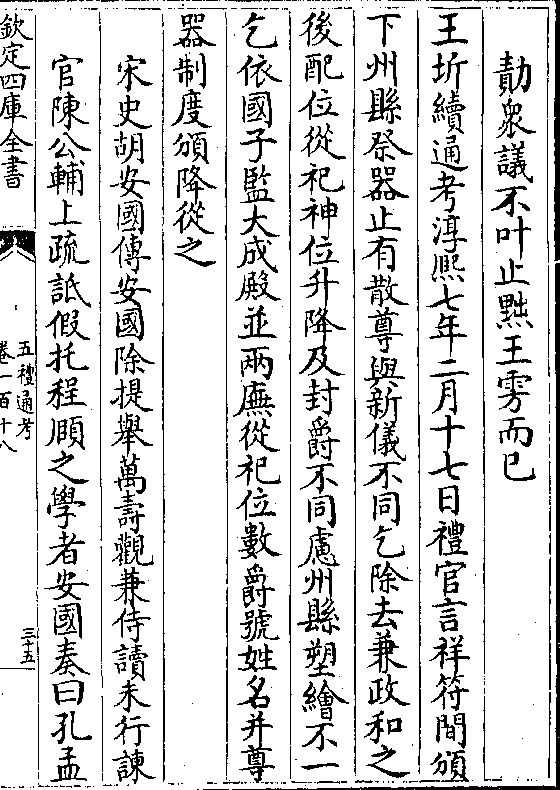 勣衆議不叶止黜王雱而已
王圻續通考淳熙七年二月十七日禮官言祥符間頒
下州縣祭器止有散尊與新儀不同乞除去兼政和之
後配位從祀神位升降及封爵不同慮州縣塑繪不一
乞依國子監大成殿並兩廡從祀位數爵號姓名并尊
器制度頒降從之
宋史胡安國傳安國除提舉萬壽觀兼侍讀未行諫
官陳公輔上疏詆假托程頤之學者安國奏曰孔孟
欽定四庫全書
五禮通考
卷一百十八
三十五